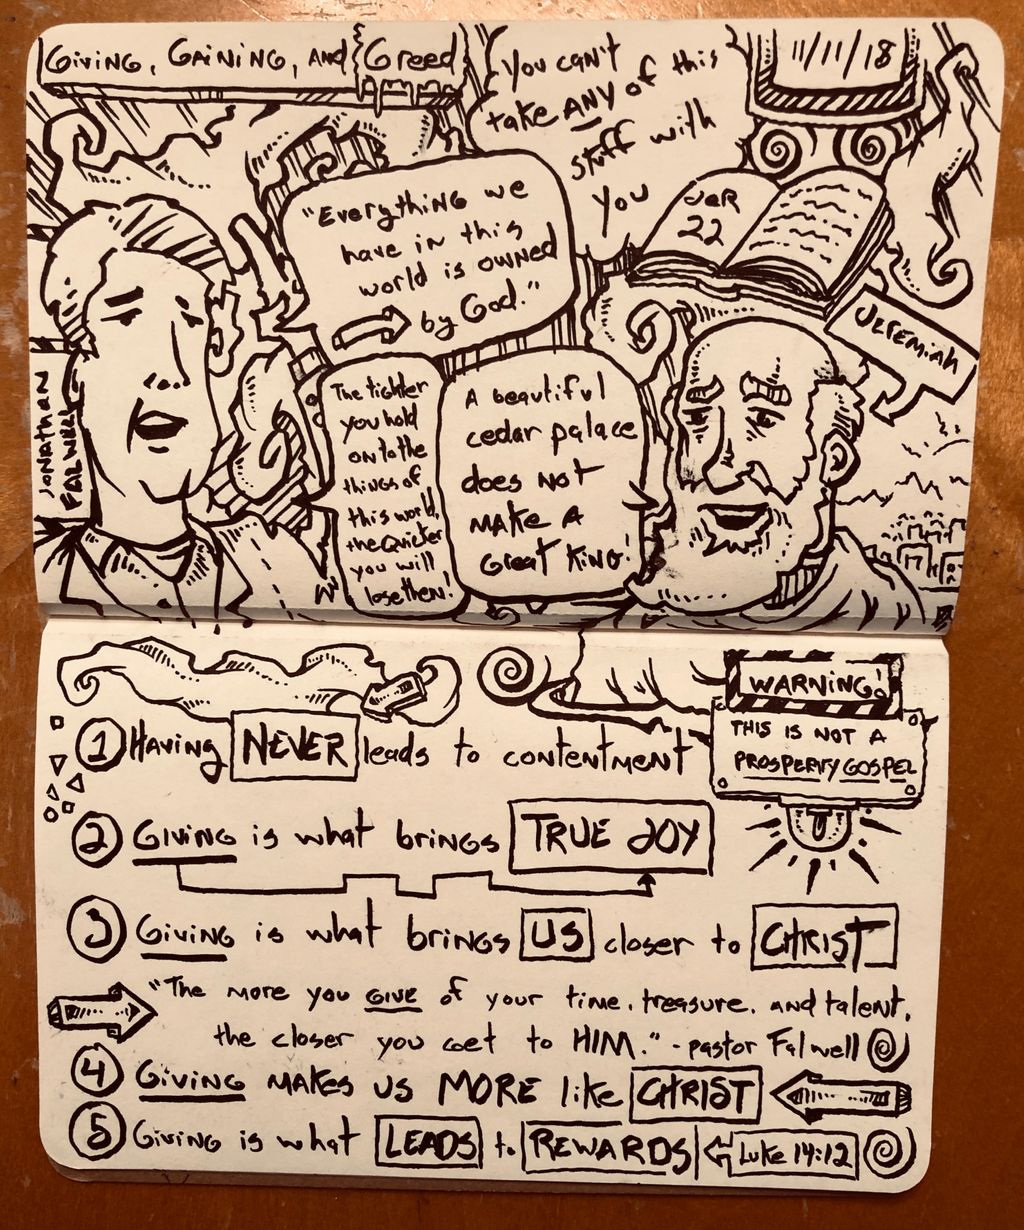 Giving, Gaining, and Greed
You can't
take ANY of this
stuff with
you
11/11/18
"Everything we
have in this
world is owned
by God."
JER
22
JEREMIAH
JONATHAN
FALWELL
The tighter
you hold
onto the
things of
this world,
the Quicker
you will
lose then!
A beautiful
cedar palace
does not
make a
Great King!
WARNING!
THIS IS NOT A
PROSPERITY GOSPEL
1 Having NEVER leads to contentment
2 Giving is what brings TRUE JOY
3 Giving is what brings US closer to CHRIST
"The more you GIVE of your time, treasure, and talent,
the closer you get to HIM." - pastor Falwell
4 Giving makes us MORE like CHRIST
5 Giving is what LEADS to REWARDS Luke 14:12